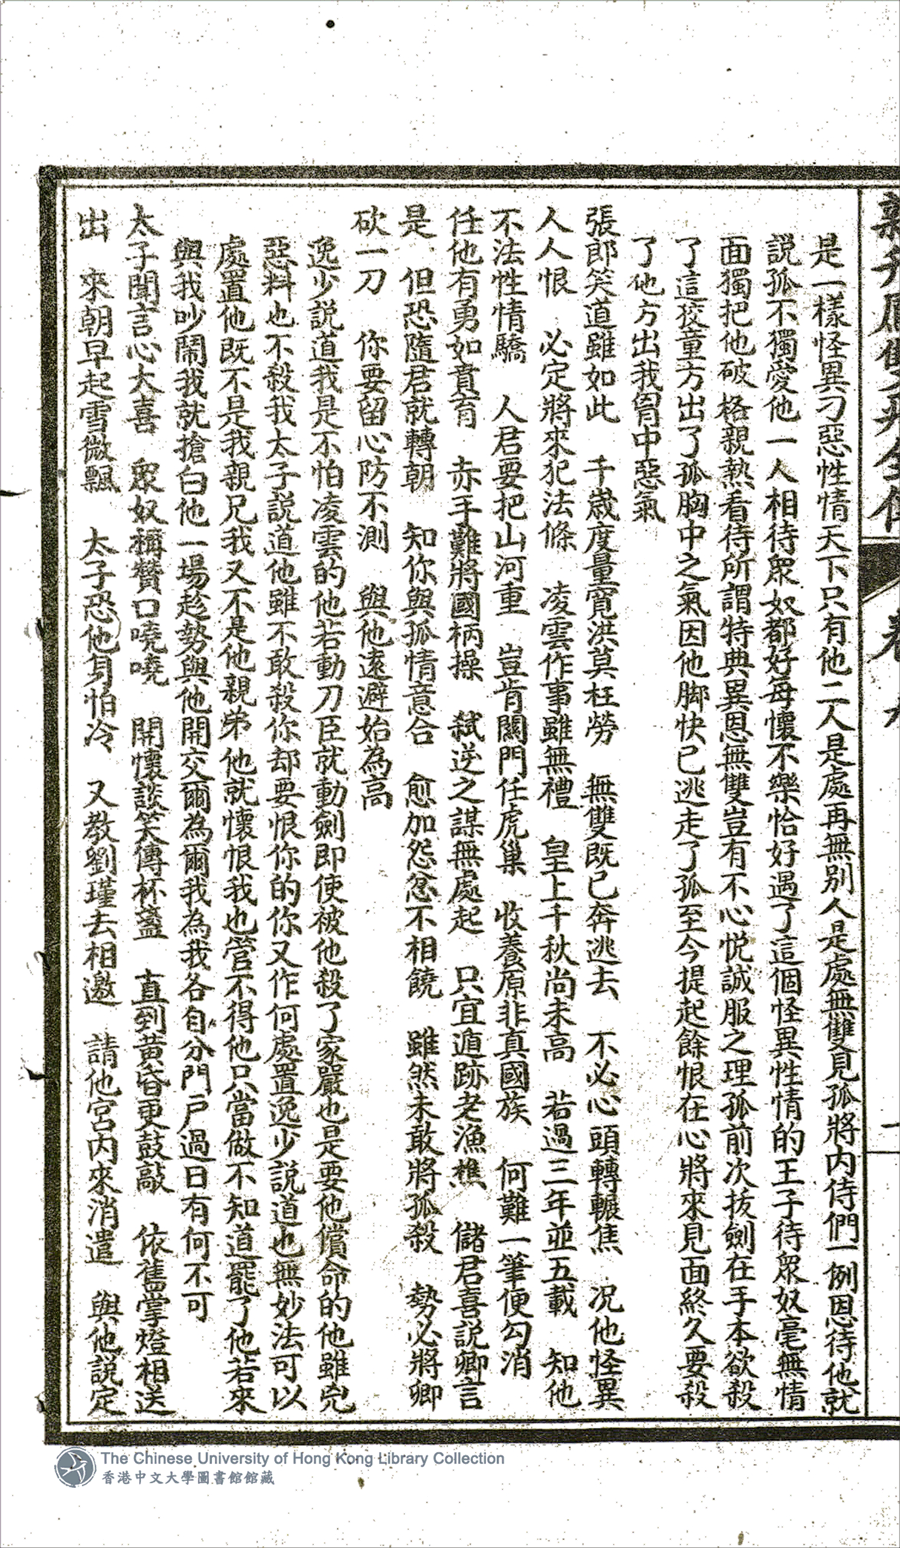 卷九
是一樣怪異刁惡性情天下只有他二人是處再無別人是處無雙見孤將內侍們一例恩待他就
說孤不獨愛他一人相待眾奴都好每懷不樂恰好遇了這個怪異性情的王子待眾奴毫無情
面獨把他破格親熱看待所謂特典異恩無雙豈有不心悅誠服之理孤前次拔劍在手本欲殺
了這狡童方出了孤胸中之氣因他脚快已逃走了孤至今提起餘恨在心將來見面終久要殺
了他方出我胷中惡氣
張郎笑道雖如此 千歲度量寬洪莫枉勞 無雙既已奔逃去 不必心頭轉輾焦 况他怪異
人人恨 必定將來犯法條 凌雲作事雖無禮 皇上千秋尚未高 若過三年並五載 知他
不法性情驕 人君要把山河重 豈肯關門任虎巢 收養原非真國族 何難一筆便勾消
任他有勇如賁育 赤手難將國柄操 弑逆之謀無處起 只宜遁跡老漁樵 儲君喜說卿言
是 但恐隨君就轉朝 知你與孤情意合 愈加怨忿不相饒 雖然未敢將孤殺 勢必將卿
砍一刀 你要留心防不測 與他遠避始為高
逸少說道我是不怕凌雲的他若動刀臣就動劍即使被他殺了家嚴也是要他償命的他雖兇
惡料也不殺我太子說道他雖不敢殺你却要恨你的你又作何處置逸少說道也無妙法可以
處置他既不是我親兄我又不是他親弟他就懷恨我也管不得他只當做不知道罷了他若來
與我吵鬧我就搶白他一場趁勢與他開交爾為爾我為我各自分門戶過日有何不可
太子聞言心大喜 眾奴稱贊口嘵嘵 開懷談笑傳杯盞 直到黃昏更鼓敲 依舊掌燈相送
出 來朝早起雪微飄 太子恐他身怕冷 又教劉瑾去相邀 請他宮內來消遣 與他說定
The Chinese University of Hong Kong Library Collection
香港中文大學圖書館館藏